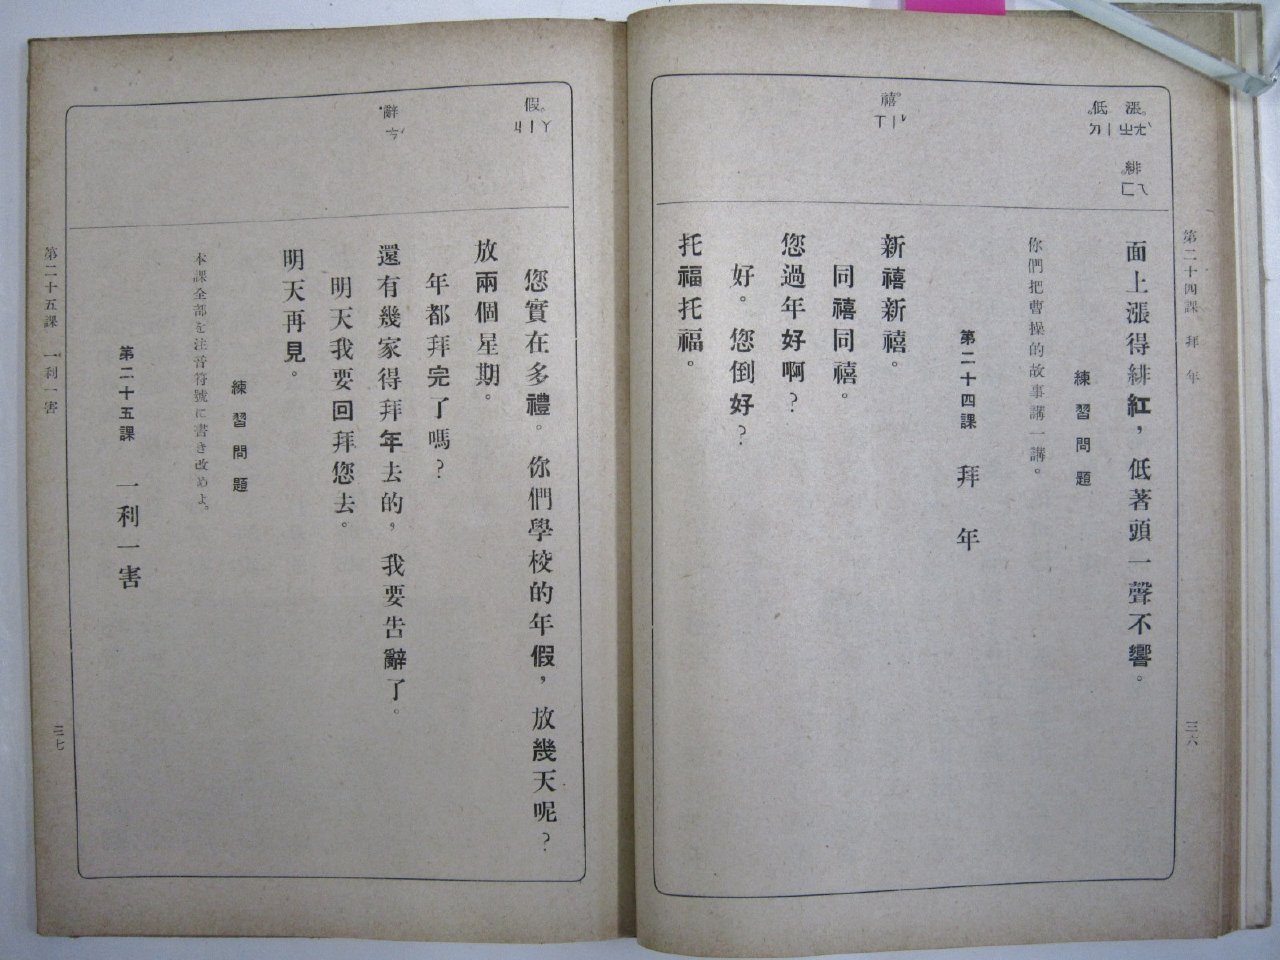 第二十四課 拜年
三六
漲。ㄓㄤˋ
緋。ㄈㄟ
低。ㄉㄧ
禧。ㄒㄧˇ
面上漲得緋紅，低著頭一聲不響。
練習問題
你們把曹操的故事講一講。
第二十四課 拜年
新禧新禧。
同禧同禧。
您過年好啊？
好。您倒好？
托福托福。
假。ㄐㄧㄚ
辭ㄘˊ
您實在多禮。你們學校的年假，放幾天呢？
放兩個星期。
年都拜完了嗎？
還有幾家得拜年去的，我要告辭了。
明天我要回拜您去。
明天再見。
練習問題
本課全部を注音符號に書き改めよ。
第二十五課 一利一害
第二十五課 一利一害
三七